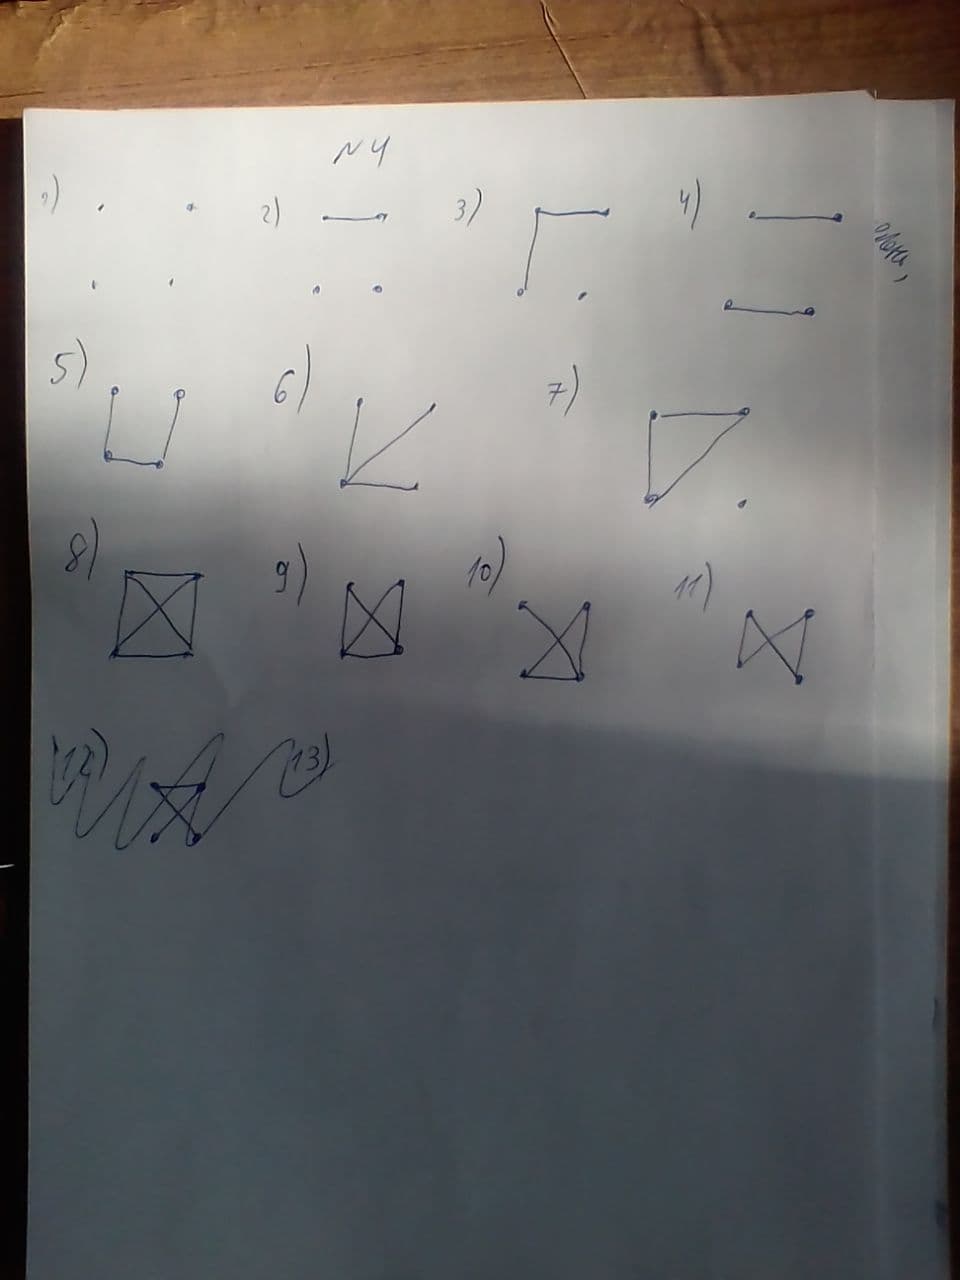 N4
1)
2)
3)
4)
5)
6)
7)
8)
9)
10)
11)
(12)
(13)